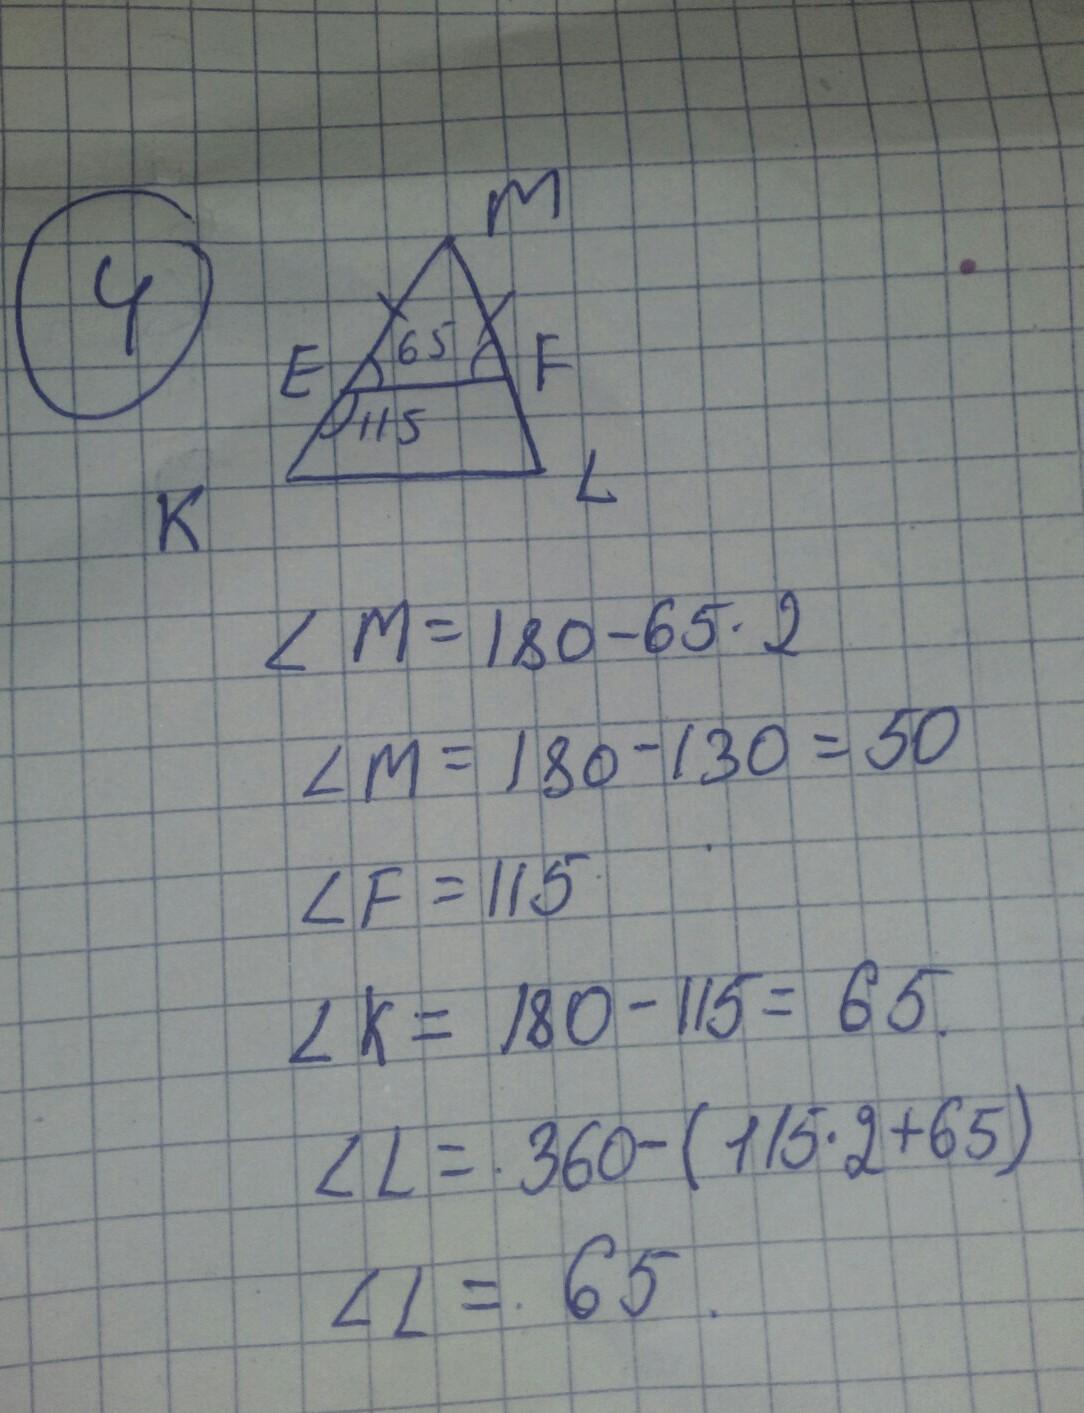 4
M
E 65 F
115
K L
∠ M = 180 - 65 · 2
∠ M = 180 - 130 = 50
∠ F = 115
∠ K = 180 - 115 = 65.
∠ L = 360 - (115 · 2 + 65)
∠ L = 65.